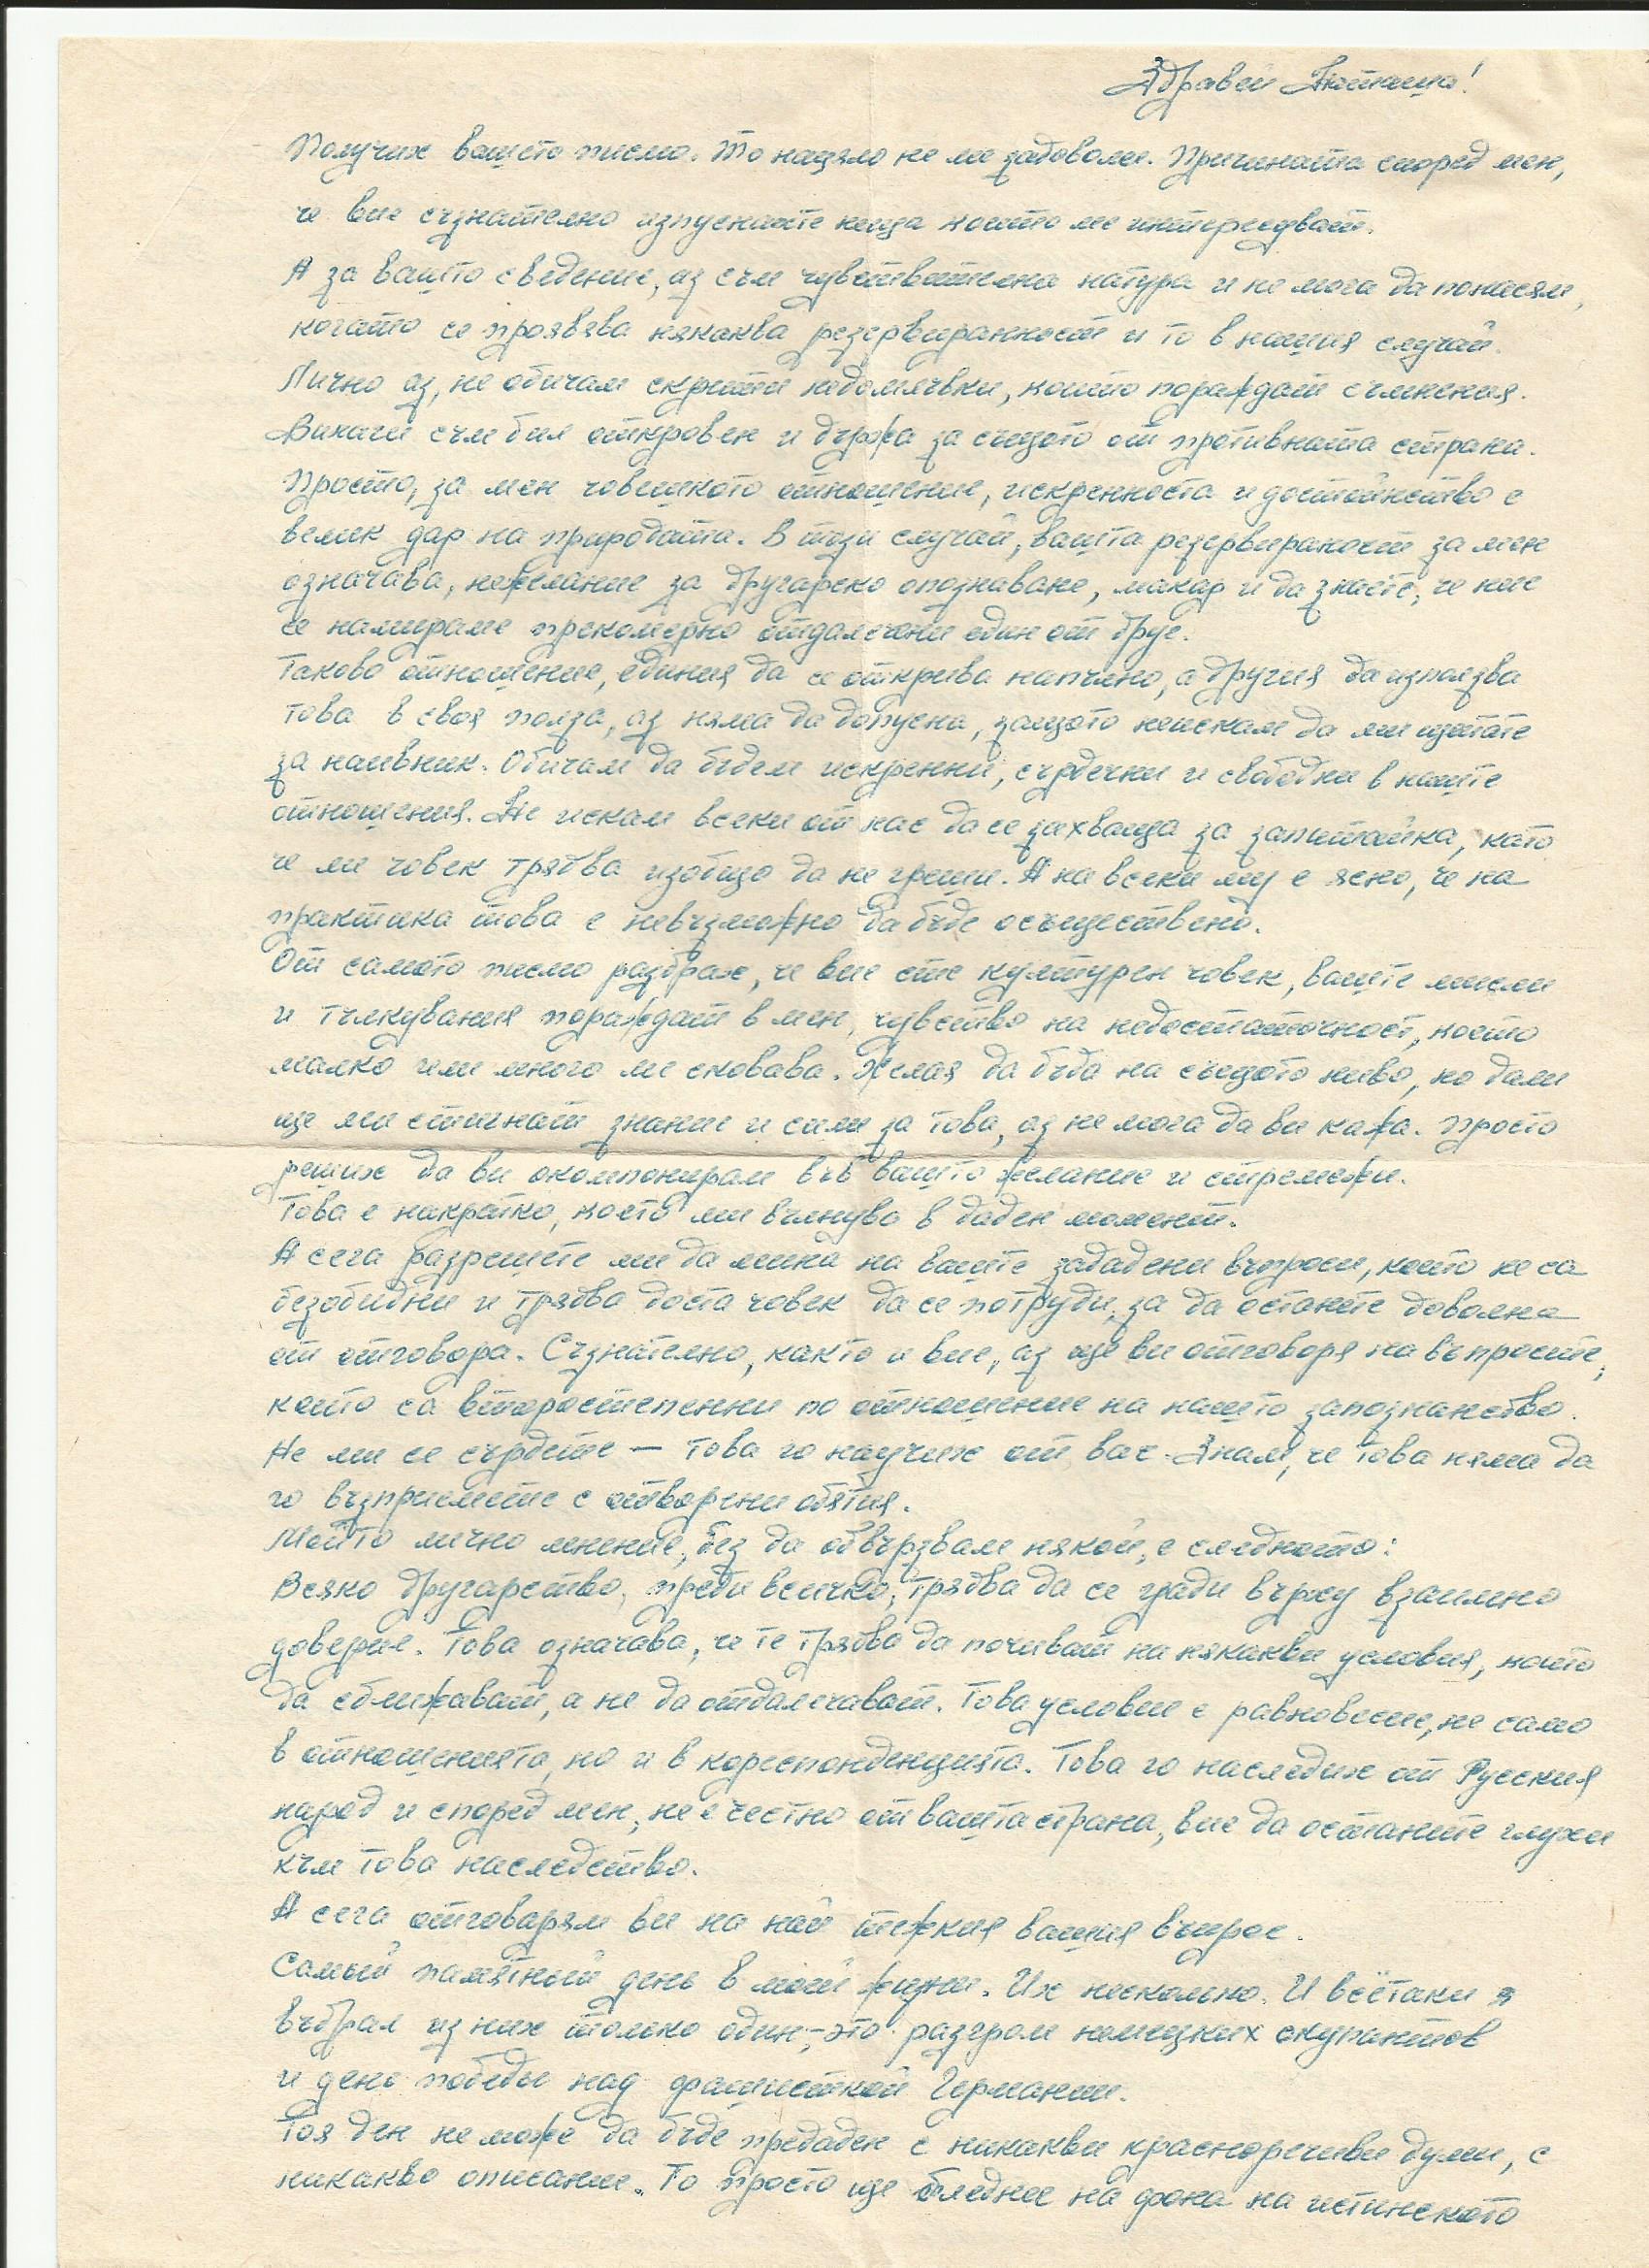 Здравей Лютенца!
Получих вашето писмо. То нацяло не ме задоволи. Причината според мен,
че вие съзнателно изпускахте неща които ме интересуват.
А за вашто сведение, аз съм чувствителна натура и не мога да понасям,
когато се проявява някаква резервираност и то в нашия случай.
Лично аз, не обичам скрити недомлъвки, които пораждат съмнения.
Винаги съм бил откровен и държа за същото от противната страна.
Просто, за мен човешкото отношение, искреноста и достойнство е
велик дар на природата. В този случай, вашта резервираност за мен
означава, нежелание за другарско опознаване, макар и да знаете, че ние
се намираме прекомерно отдалечени един от друг.
Такова отношение, единия да се открива напълно, а другия да използва
това в своя полза, аз няма да допусна, защото неискам да ми щитате
за наивник. Обичам да бъдем искренни, сърдечни и свободни в нашите
отношения. Не искам всеки от нас да се захваща за запитайка, като
че ли човек трябва изобщо да не греши. А на всеки му е ясно, че на
практика това е невъзможно да бъде осъществено.
От самото писмо разбрах, че вие сте културен човек, вашите мисли
и тълкувания пораждат в мен, чувство на недостатъчност, което
малко или много ме сковава. Желая да бъда на същото ниво, но дали
ще ми стигнат знание и сили за това, аз не мога да ви кажа. Просто
реших да ви окомпонирам във вашто желание и стремежи.
Това е накратко, което ми вълнува в даден момент.
А сега разрешете ми да мина на вашите зададени въпроси, които не са
безобидни и трябва доста човек да се потруди, за да останете доволна
от отговора. Съзнателно, както и вие, аз ще ви отговоря на въпросите,
които са второстепенни по отношение на нашто запознанство.
Не ми се сърдете — това го научих от вас. Знам, че това няма да
го възприемете с отворени обятия.
Мойто лично мнение, без да обвързвам някой, е следното:
Всяко другарство, преди всичко, трябва да се гради върху взаимно
доверие. Това означава, че те трябва да почиват на някакви условия, които
да сближават, а не да отдалечават. Това условие е равновесие, не само
в отношенията, но и в кореспонденцията. Това го наследих от Русския
народ и според мен, не е честно от вашта страна, вие да останете глухи
към това наследство.
А сега отговарям ви на най тежкия вашия въпрос.
Самый памятный день в моей жизни. Их несколько. И всётаки я
въбрал из них только один,- это разгром немецких окупантов
и день победы над фашисткой Германии.
Тоя ден неможе да бъде предаден с никакви красноречиви думи, с
никакво описание. То просто ще бледнее на фона на истинското